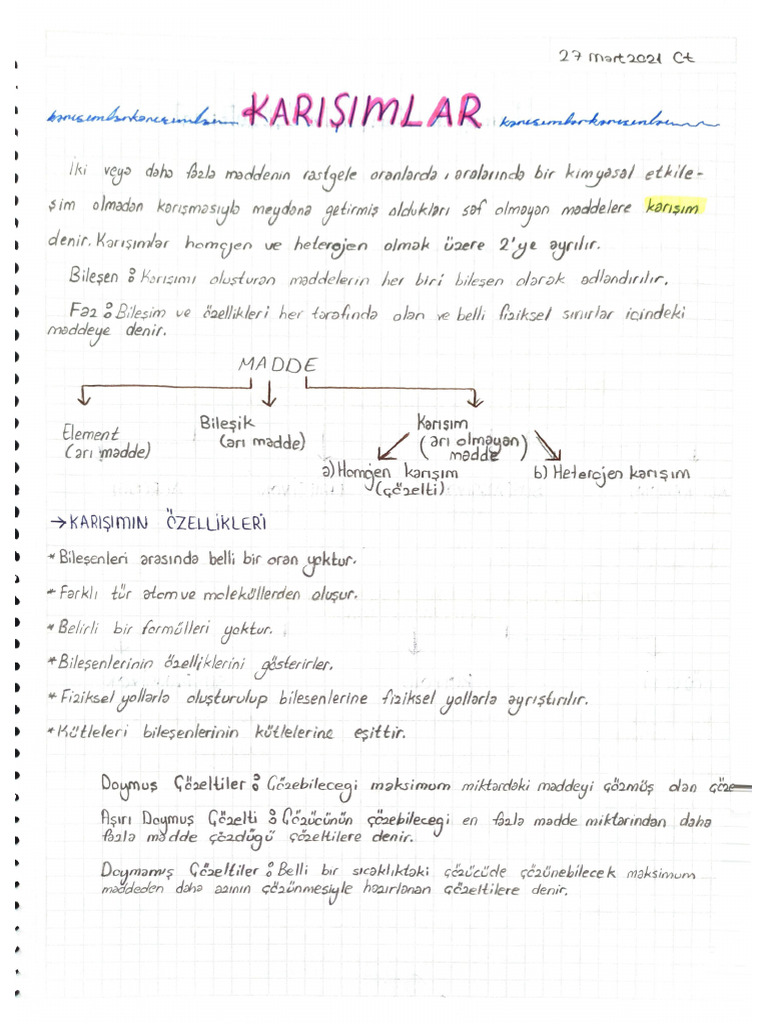 27 Mart 2021 Ct
KARIŞIMLAR
İki veya daha fazla maddenin rastgele oranlarda, aralarında bir kimyasal etkile-
şim olmadan karışmasıyla meydana getirmiş oldukları saf olmayan maddelere karışım
denir. Karışımlar homojen ve heterojen olmak üzere 2'ye ayrılır.
Bileşen : Karışımı oluşturan maddelerin her biri bileşen olarak adlandırılır.
Faz : Bileşim ve özellikleri her tarafında olan ve belli fiziksel sınırlar içindeki
maddeye denir.
MADDE
Element
(arı madde)
Bileşik
(arı madde)
Karışım
(arı olmayan)
madde
a) Homojen karışım
(çözelti)
b) Heterojen karışım
→ KARIŞIMIN ÖZELLİKLERİ
* Bileşenleri arasında belli bir oran yoktur.
* Farklı tür atom ve moleküllerden oluşur.
* Belirli bir formülleri yoktur.
* Bileşenlerinin özelliklerini gösterirler.
* Fiziksel yollarla oluşturulup bileşenlerine fiziksel yollarla ayrıştırılır.
* Kütleleri bileşenlerinin kütlelerine eşittir.
Doymuş Çözeltiler : Çözebilecegi maksimum miktardaki maddeyi çözmüş olan çöze
Aşırı Doymuş Çözelti : Çözücünün çözebilecegi en fazla madde miktarından daha
fazla madde çözdügü çözeltilere denir.
Doymamış Çözeltiler : Belli bir sıcaklıktaki çözücüde çözünebilecek maksimum
maddeden daha azının çözünmesiyle hazırlanan çözeltilere denir.